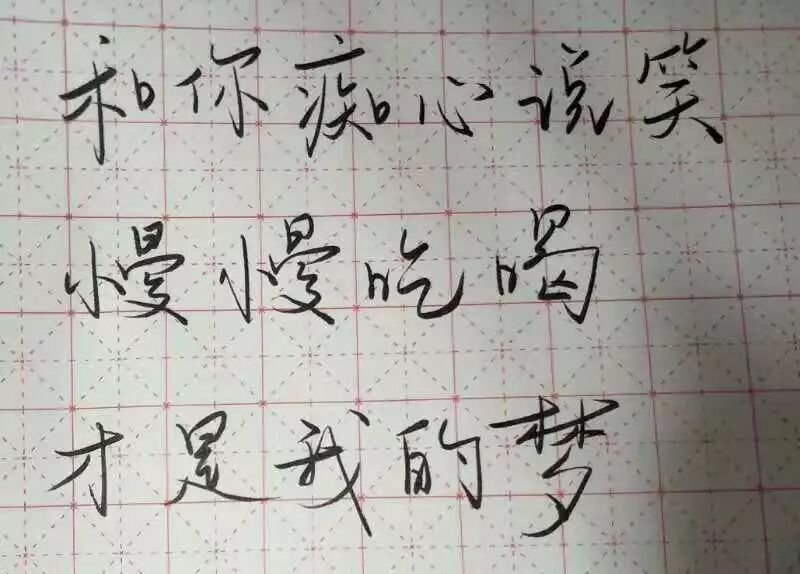 和你痴心说笑
慢慢吃喝
才是我的梦